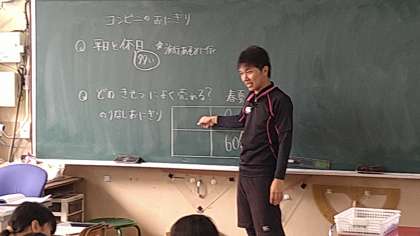 コンビニのおにぎり
Q 平日と休日
多い
Q どのきせつによく売れる? 春夏
のりなしおにぎり
60